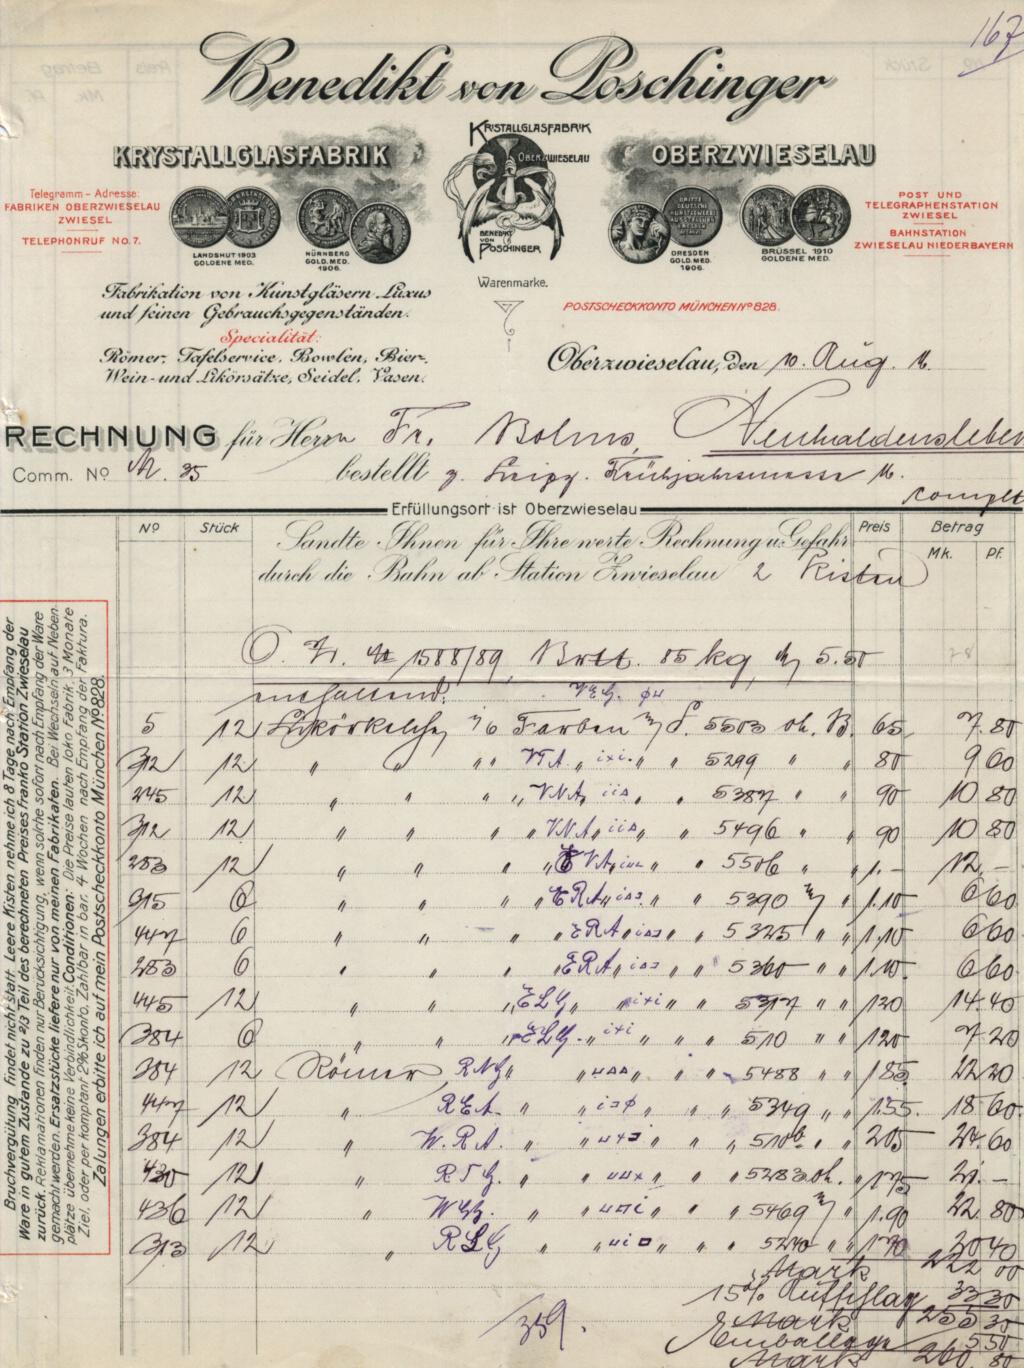 167
Benedikt von Poschinger
KRYSTALLGLASFABRIK
KRISTALLGLASFABRIK
OBERZWIESELAU
BENEDIKT
VON
POSCHINGER
OBERZWIESELAU
Telegramm-Adresse:
FABRIKEN OBERZWIESELAU
ZWIESEL
TELEPHONRUF NO. 7.
LANDSHUT 1903
GOLDENE MED.
NÜRNBERG
GOLD. MED.
1906.
Warenmarke.
DRITTE
DEUTSCHE
KUNSTGEWERBE
AUSSTELLUNG
DRESDEN
1906
DRESDEN
GOLD. MED.
1906.
BRÜSSEL 1910
GOLDENE MED.
POST UND
TELEGRAPHENSTATION
ZWIESEL
BAHNSTATION
ZWIESELAU NIEDERBAYERN
Fabrikation von Kunstgläsern Luxus
und feinen Gebrauchsgegenständen.
Specialität:
Römer, Tafelservice, Bowlen, Bier-,
Wein- und Likörsätze, Seidel, Vasen.
POSTSCHECKKONTO MÜNCHEN No 828.
Oberzwieselau, den 10. Aug. 16.
RECHNUNG für Herrn Fr. Bolms, Neuhaldensleben
Comm. No 35 bestellt z. Leipz. Frühjahrsmesse 16.
complt
Erfüllungsort ist Oberzwieselau
No Stück Preis Betrag
Mk. Pf.
Sandte Ihnen für Ihre werte Rechnung u. Gefahr
durch die Bahn ab Station Zwieselau 2 Kisten
1588/89 Btto. 85 kg 5.50
enthaltend:
5 12 Likörkelche 6 Farben 5503 oh. B. 65 7.80
312 12 " " " " 5299 " " 80 9 60
245 12 " " " " 5387 " " 90 10 80
312 12 " " " V.N.A. " " 5496 " " 90 10 80
283 12 " " " " 5506 " " 1.- 12.-
315 6 " " " E R A " " 5390 " 1.10 6 60
447 6 " " " E R A " " 5325 " " 1.10 6 60
283 6 " " " E R A " " 5360 " " 1.10 6 60
445 12 " " " " " 5317 " " 120 14.40
384 6 " " " " " 510 " " 120 7.20
384 12 Römer " " " 5488 " " 185 22 20
447 12 " R.E.A. " " " 5349 " " 1.55 18 60
384 12 " W.R.A. " " " 510b " " 205 24.60
430 12 " " " " 5283 oh. " 175 21.-
436 12 " " " " 5469 " 1.90 22 80
313 12 " " " " 5240 " " 170 20 40
Mark 222 00
15% Aufschlag 33 30
Mark 255 30
Emballage 5 50
Mark 260 80
359.
Bruchvergütung findet nicht statt. Leere Kisten nehme ich 8 Tage nach Empfang der
Ware in gutem Zustande zu 2/3 Teil des berechneten Preises franko Station Zwieselau
zurück. Reklamationen finden nur Berücksichtigung, wenn solche sofort nach Empfang der Ware
gemacht werden. Ersatzstücke liefere nur von meinen Fabrikaten. Bei Wechseln auf Neben-
plätze übernehme keine Verbindlichkeit. Conditionen: Die Preise lauten loko Fabrik, 3 Monate
Ziel, oder per komptant 2% Skonto. Zahlbar in bar, 4 Wochen nach Empfang der Faktura.
Zalungen erbitte ich auf mein Postscheckkonto München No 828.